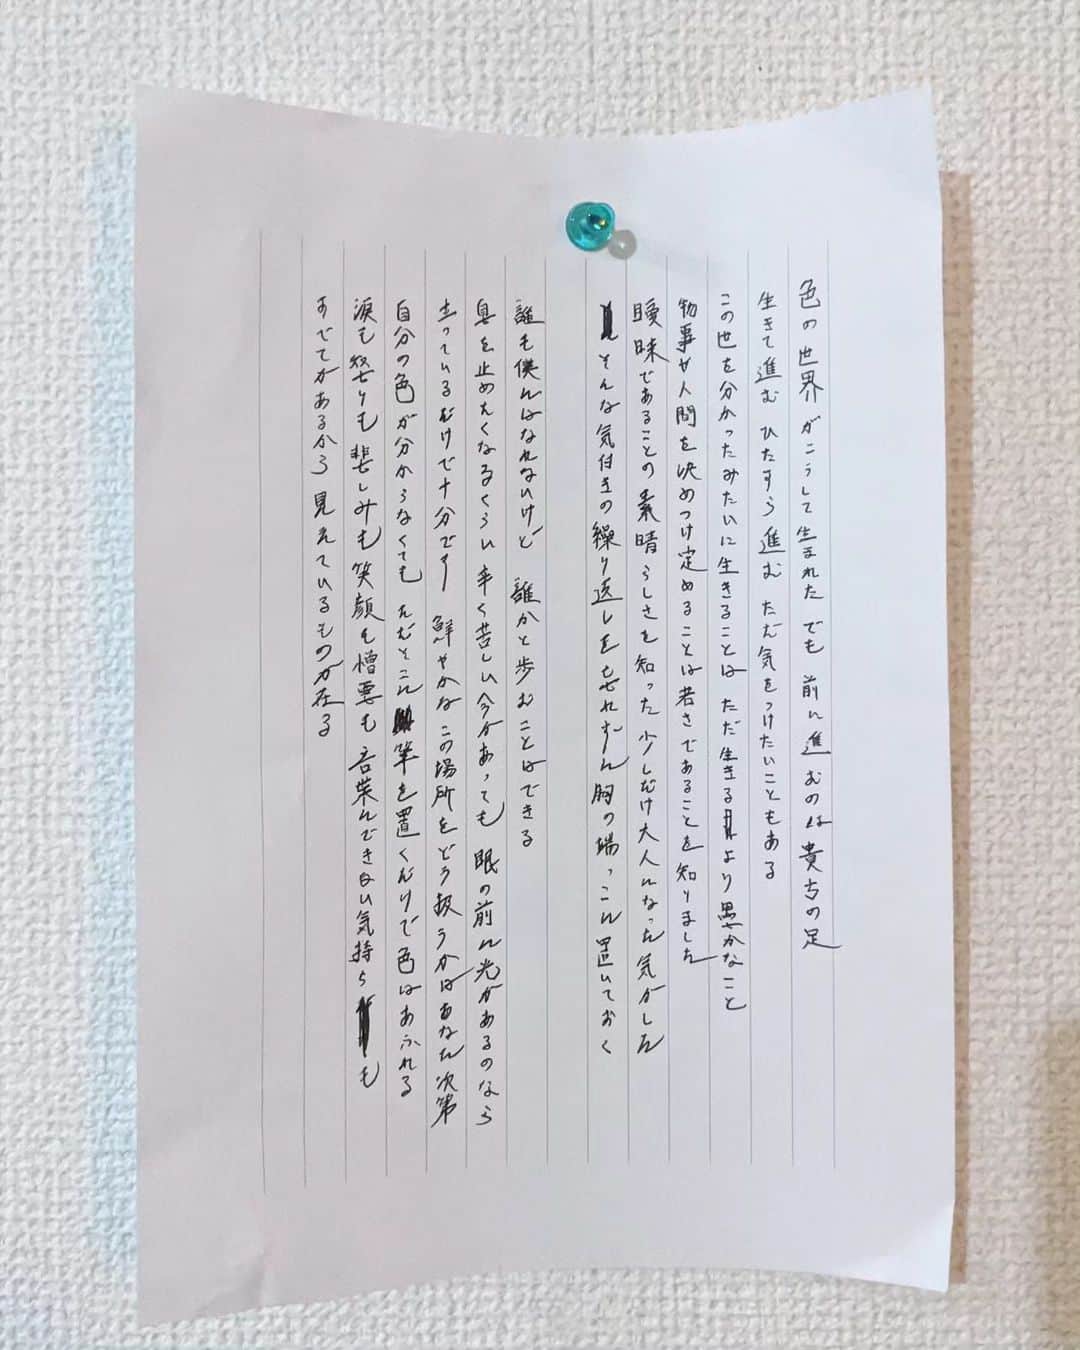 色の世界がこうして生まれた でも 前に進むのは貴方の足
生きて進む ひたすら進む ただ気をつけたいこともある
この世を分かったみたいに生きることは ただ生きるより愚かなこと
物事や人間を決めつけ定めることは若さであることを知りました
曖昧であることの素晴らしさを知った 少しだけ大人になった気がした
そんな気付きの繰り返しを忘れずに 胸の端っこに置いておく
誰も僕にはなれないけど 誰かと歩むことはできる
息を止めたくなるくらい 辛く苦しい今があっても 眼の前に光があるのなら
立っているだけで十分です 鮮やかなこの場所をどう扱うかはあなた次第
自分の色が分からなくても ただそこに筆を置くだけで色はあふれる
涙も怒りも悲しみも笑顔も憎悪も 言葉にできない気持ちも
すべてがあるから 見えているものが在る